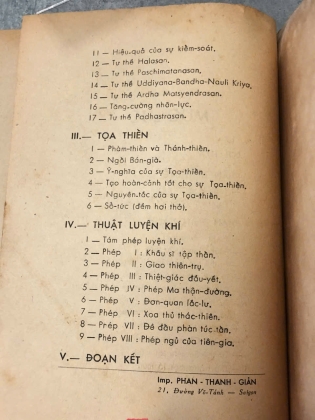 11 — Hiệu-quả của sự kiểm-soát.
12 — Tư thế Halasan.
13 — Tư thế Paschimatanasan.
14 — Tư thế Uddiyana-Bandha-Nauli Kriya.
15 — Tư thế Ardha Matsyendrasan.
16 — Tăng-cường nhãn-lực.
17 — Tư thế Padhastrasan.
III.— TỌA THIỀN
1 — Phàm-thiền và Thánh-thiền.
2 — Ngồi Bán-già.
3 — Ý-nghĩa của sự Tọa-thiền.
4 — Tạo hoàn-cảnh tốt cho sự Tọa-thiền.
5 — Nguyên-tắc của sự Tọa-thiền.
6 — Sổ-tức (đếm hơi thở).
IV.— THUẬT LUYỆN KHÍ.
1 — Tám phép luyện khí.
2 — Phép I : Khấu sỉ tập thần.
3 — Phép II : Giao thiên-trụ.
4 — Phép III : Thiệt-giác đầu-yết.
5 — Phép IV : Phép Ma thận-đường.
6 — Phép V : Đơn-quan lắc-lư.
7 — Phép VI : Xoa thủ thác-thiên.
8 — Phép VII : Đê đầu phàn túc tận.
9 — Phép VIII : Phép ngủ của tiên-gia.
V.— ĐOẠN KẾT
Imp. PHAN - THANH - GIẢN
21, Đường Võ-Tánh — Saigon